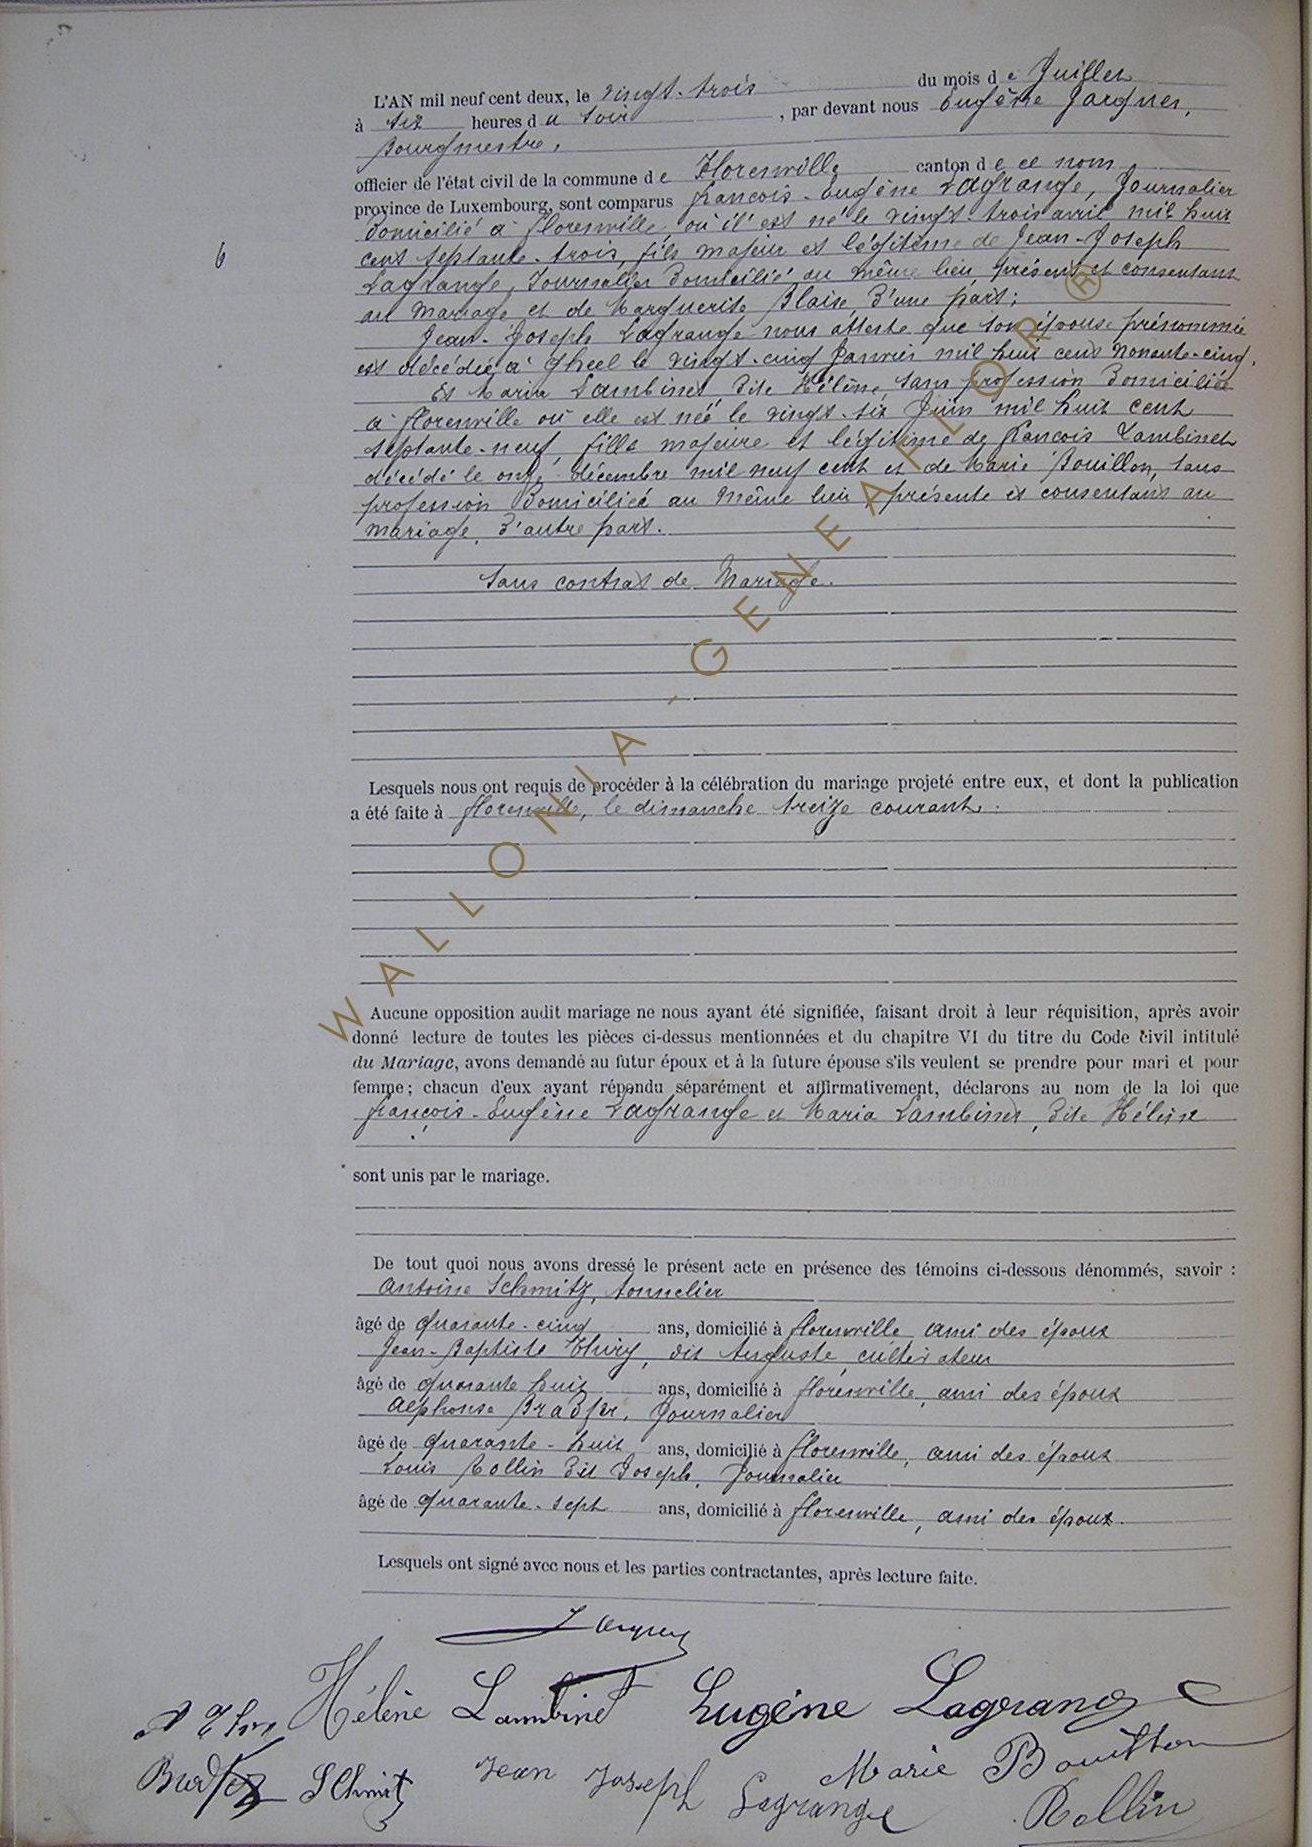 L'AN mil neuf cent deux, le vingt-trois du mois de Juillet
à six heures du soir, par devant nous Eugène Jacques,
Bourgmestre,
officier de l'état civil de la commune de Florenville canton de ce nom,
province de Luxembourg, sont comparus françois-Eugène Lagrange, Journalier
Domicilié à florenville, où il est né le vingt-trois avril mil huit
6
cent septante-trois, fils majeur et légitime de Jean-Joseph
Lagrange, Journalier Domicilié au même lieu, présent et consentant
au mariage et de Marguerite Blaise, D'une part;
Jean-Joseph Lagrange nous atteste que son épouse prénommée
est décédée à Gheel le vingt-cinq Janvier mil huit cent nonante-cinq.
Et Maria Lambinet Dite Hélène, sans profession Domiciliée
à florenville où elle est née le vingt-six Juin mil huit cent
septante-neuf, fille majeure et légitime de françois Lambinet
décédé le onze décembre mil neuf cent et de Marie Bouillon, sans
profession Domiciliée au même lieu, présente et consentant au
mariage, D'autre part.
Sans contrat de Mariage.
Lesquels nous ont requis de procéder à la célébration du mariage projeté entre eux, et dont la publication
a été faite à florenville, le dimanche treize courant.
Aucune opposition audit mariage ne nous ayant été signifiée, faisant droit à leur réquisition, après avoir
donné lecture de toutes les pièces ci-dessus mentionnées et du chapitre VI du titre du Code civil intitulé
du Mariage, avons demandé au futur époux et à la future épouse s'ils veulent se prendre pour mari et pour
femme; chacun d'eux ayant répondu séparément et affirmativement, déclarons au nom de la loi que
françois-Eugène Lagrange et Maria Lambinet, Dite Hélène
sont unis par le mariage.
De tout quoi nous avons dressé le présent acte en présence des témoins ci-dessous dénommés, savoir :
Antoine Schmitz, tonnelier
âgé de quarante-cinq ans, domicilié à florenville, ami des époux
Jean-Baptiste Thiry, dit Auguste, cultivateur
âgé de quarante huit ans, domicilié à florenville, ami des époux
Alphonse Bradfer, Journalier
âgé de quarante-huit ans, domicilié à florenville, ami des époux
Louis Rollin Dit Joseph, Journalier
âgé de quarante-sept ans, domicilié à florenville, ami des époux.
Lesquels ont signé avec nous et les parties contractantes, après lecture faite.
Jacques
Hélène Lambinet Eugène Lagrange
Bradfer SChmitz Jean Joseph Lagrange Marie Bouillon
Rollin
WALLONIA-GENEAFLOR ®